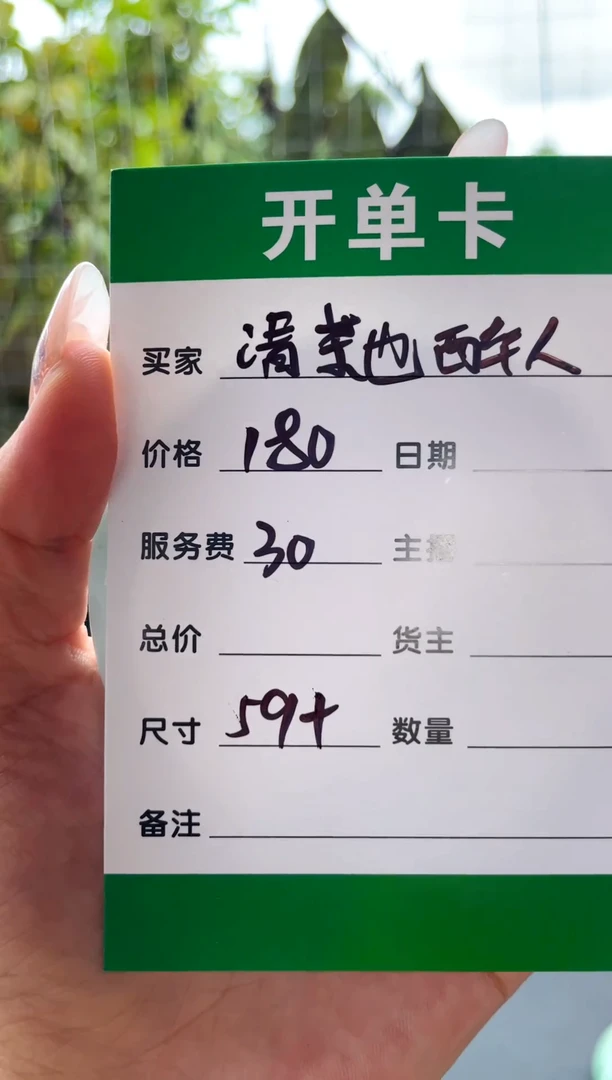 开单卡
买家 清茶也醉人
价格 180 日期
服务费 30 主播
总价 货主
尺寸 59+ 数量
备注